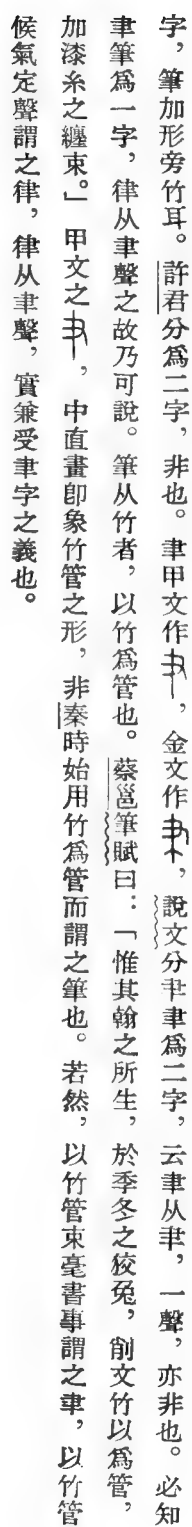 字，筆加形旁竹耳。許君分爲二字，非也。聿甲文作，金文作，說文分𦘒聿爲二字，云聿从𦘒，一聲，亦非也。必知
聿筆爲一字，律从聿聲之故乃可說。筆从竹者，以竹爲管也。蔡邕筆賦曰：「惟其翰之所生，於季冬之狡兔，削文竹以爲管，
加漆糸之纏束。」甲文之，中直畫卽象竹管之形，非秦時始用竹爲管而謂之筆也。若然，以竹管束毫書事謂之聿，以竹管
候氣定聲謂之律，律从聿聲，實兼受聿字之義也。